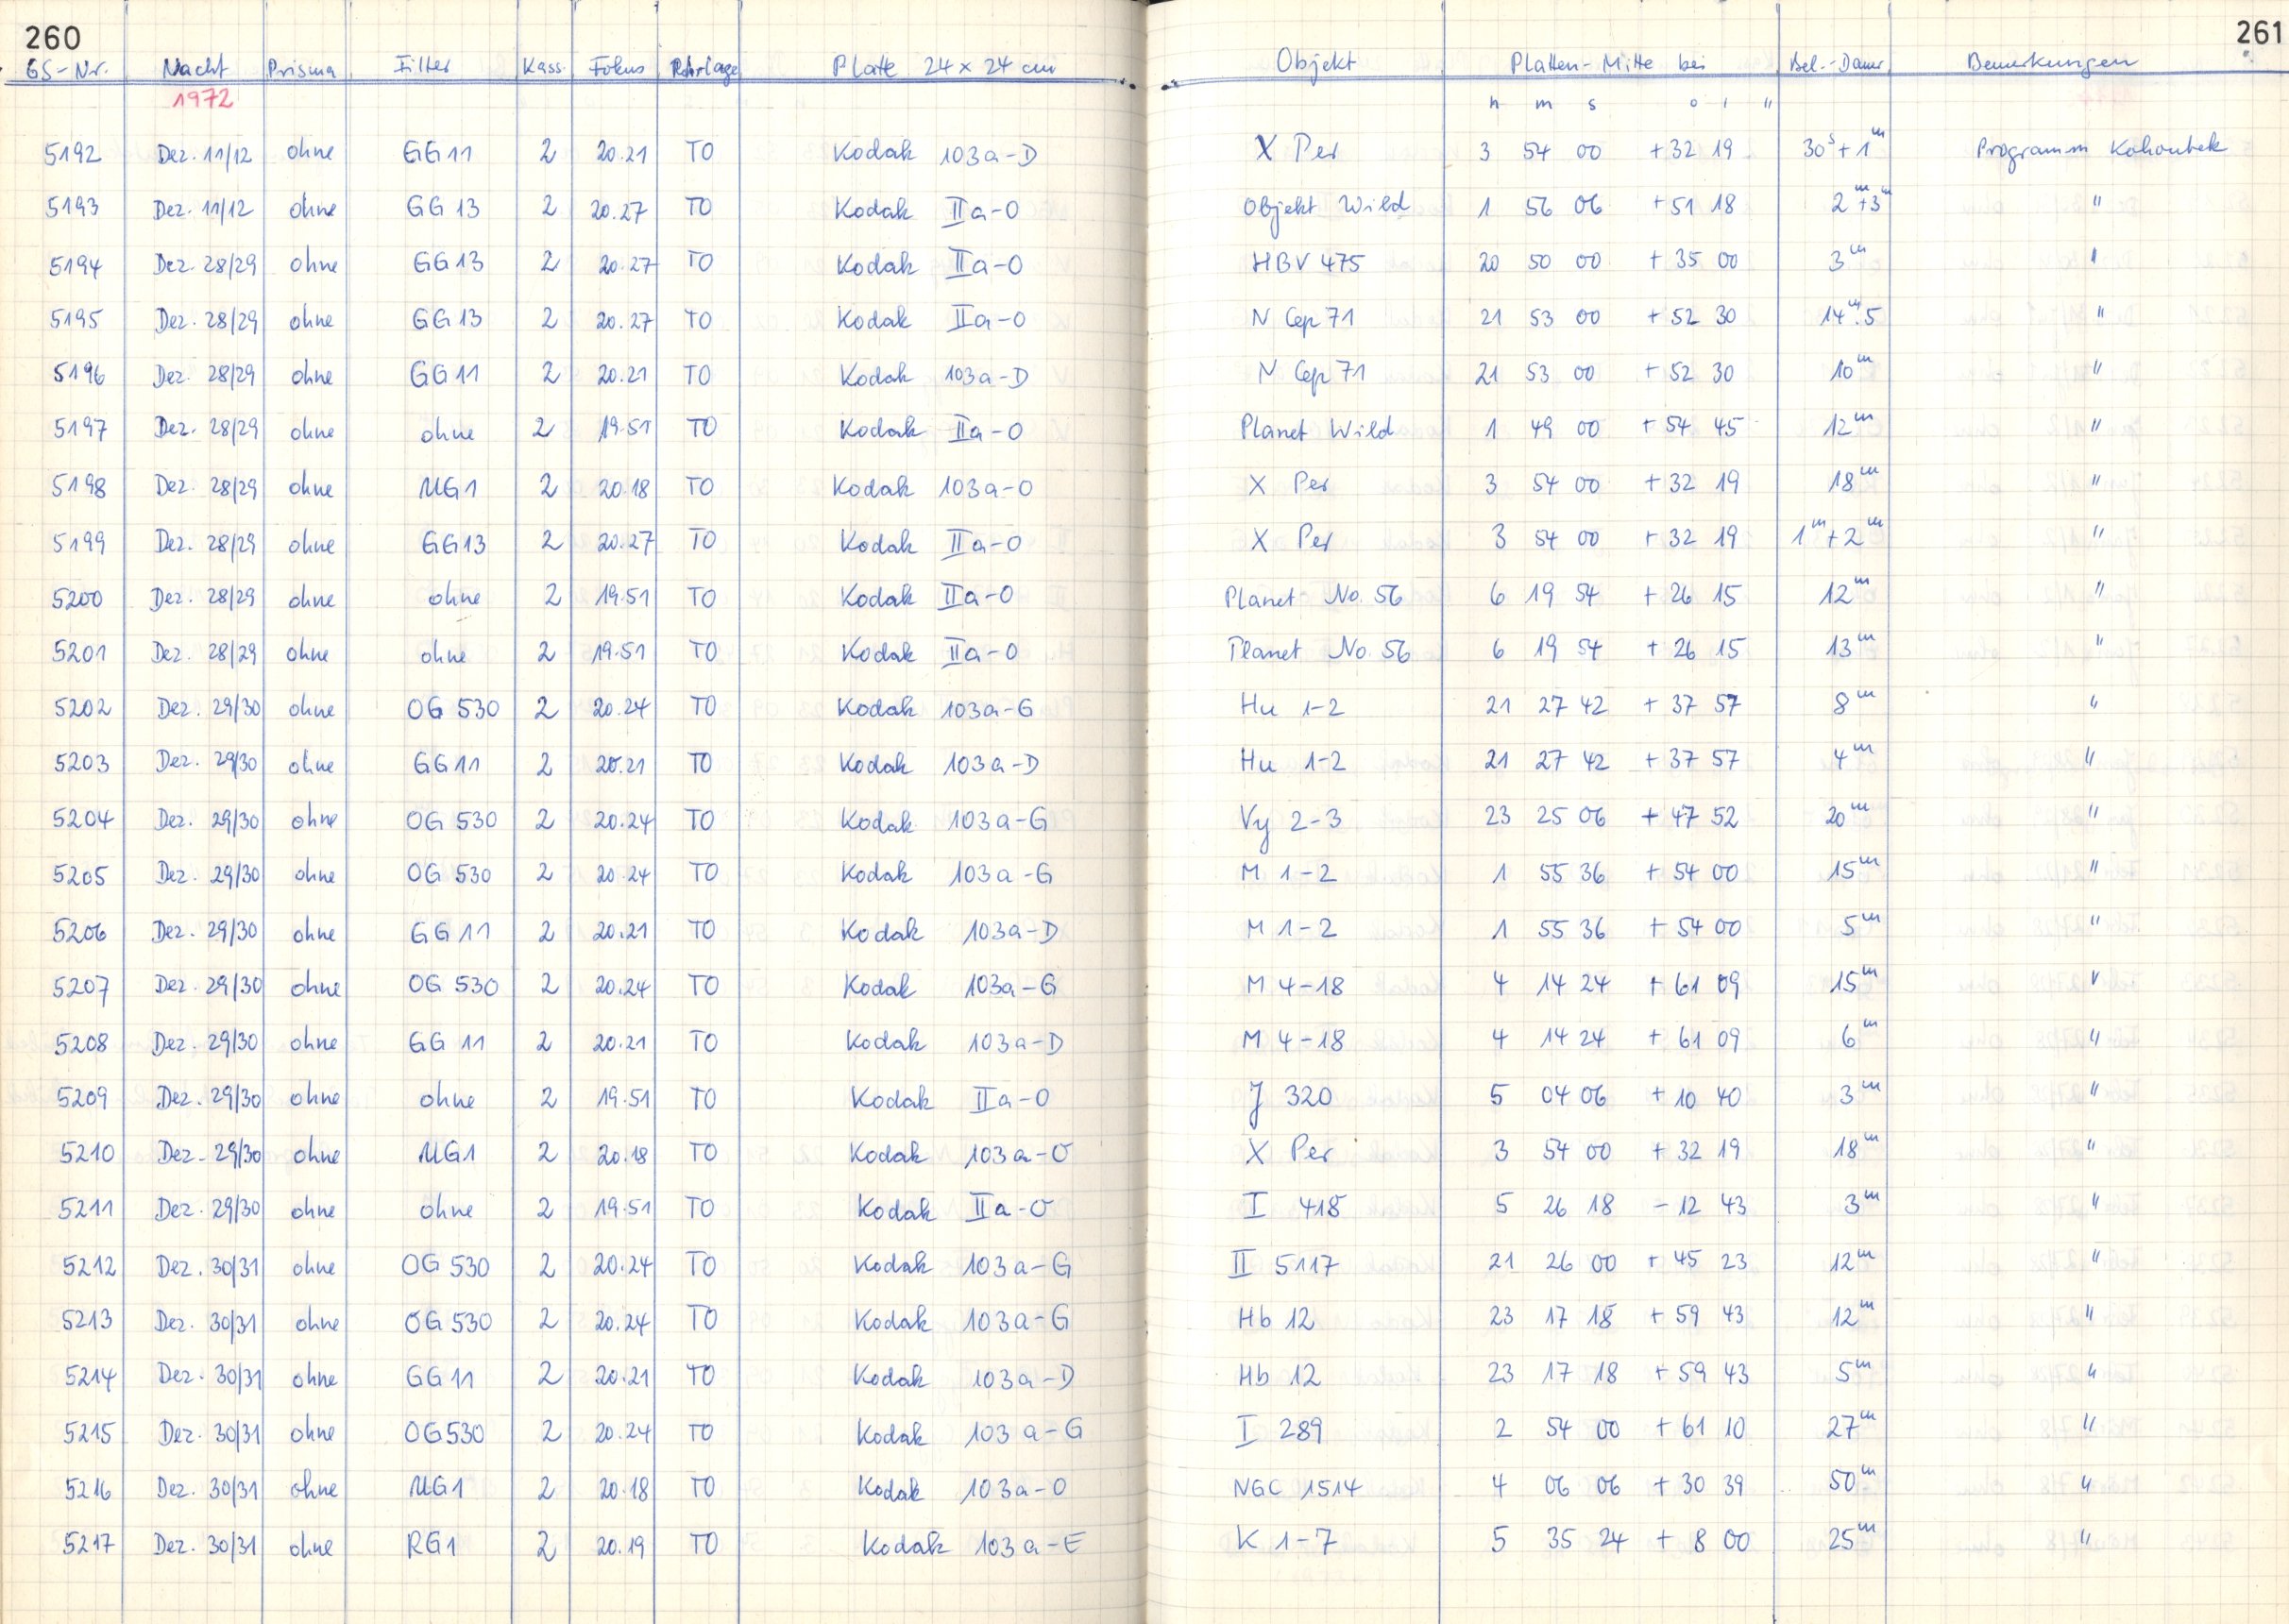 260 261
GS-Nr. Nacht Prisma Filter Kass. Fokus Rohrlage Platte 24 x 24 cm Objekt Platten-Mitte bei Bel.-Dauer Bemerkungen
1972 h m s ° ' "
5192 Dez. 11/12 ohne GG11 2 20.21 TO Kodak 103a-D X Per 3 54 00 +32 19 30s+1m Programm Kohoutek
5193 Dez. 11/12 ohne GG13 2 20.27 TO Kodak IIa-O Objekt Wild 1 56 06 +51 18 2m+3m "
5194 Dez. 28/29 ohne GG13 2 20.27 TO Kodak IIa-O HBV 475 20 50 00 +35 00 3m "
5195 Dez. 28/29 ohne GG13 2 20.27 TO Kodak IIa-O N Cep 71 21 53 00 +52 30 14m.5 "
5196 Dez. 28/29 ohne GG11 2 20.21 TO Kodak 103a-D N Cep 71 21 53 00 +52 30 10m "
5197 Dez. 28/29 ohne ohne 2 19.51 TO Kodak IIa-O Planet Wild 1 49 00 +54 45 12m "
5198 Dez. 28/29 ohne UG1 2 20.18 TO Kodak 103a-O X Per 3 54 00 +32 19 18m "
5199 Dez. 28/29 ohne GG13 2 20.27 TO Kodak IIa-O X Per 3 54 00 +32 19 1m+2m "
5200 Dez. 28/29 ohne ohne 2 19.51 TO Kodak IIa-O Planet No. 56 6 19 54 +26 15 12m "
5201 Dez. 28/29 ohne ohne 2 19.51 TO Kodak IIa-O Planet No. 56 6 19 54 +26 15 13m "
5202 Dez. 29/30 ohne OG 530 2 20.24 TO Kodak 103a-G Hu 1-2 21 27 42 +37 57 8m "
5203 Dez. 29/30 ohne GG11 2 20.21 TO Kodak 103a-D Hu 1-2 21 27 42 +37 57 4m "
5204 Dez. 29/30 ohne OG 530 2 20.24 TO Kodak 103a-G Vy 2-3 23 25 06 +47 52 20m "
5205 Dez. 29/30 ohne OG 530 2 20.24 TO Kodak 103a-G M 1-2 1 55 36 +54 00 15m "
5206 Dez. 29/30 ohne GG11 2 20.21 TO Kodak 103a-D M 1-2 1 55 36 +54 00 5m "
5207 Dez. 29/30 ohne OG 530 2 20.24 TO Kodak 103a-G M 4-18 4 14 24 +61 09 15m "
5208 Dez. 29/30 ohne GG 11 2 20.21 TO Kodak 103a-D M 4-18 4 14 24 +61 09 6m "
5209 Dez. 29/30 ohne ohne 2 19.51 TO Kodak IIa-O J 320 5 04 06 +10 40 3m "
5210 Dez. 29/30 ohne UG1 2 20.18 TO Kodak 103a-O X Per 3 54 00 +32 19 18m "
5211 Dez. 29/30 ohne ohne 2 19.51 TO Kodak IIa-O I 418 5 26 18 -12 43 3m "
5212 Dez. 30/31 ohne OG 530 2 20.24 TO Kodak 103a-G II 5117 21 26 00 +45 23 12m "
5213 Dez. 30/31 ohne OG 530 2 20.24 TO Kodak 103a-G Hb 12 23 17 18 +59 43 12m "
5214 Dez. 30/31 ohne GG11 2 20.21 TO Kodak 103a-D Hb 12 23 17 18 +59 43 5m "
5215 Dez. 30/31 ohne OG530 2 20.24 TO Kodak 103a-G I 289 2 54 00 +61 10 27m "
5216 Dez. 30/31 ohne UG1 2 20.18 TO Kodak 103a-O NGC 1514 4 06 06 +30 39 50m "
5217 Dez. 30/31 ohne RG1 2 20.19 TO Kodak 103a-E K 1-7 5 35 24 +8 00 25m "